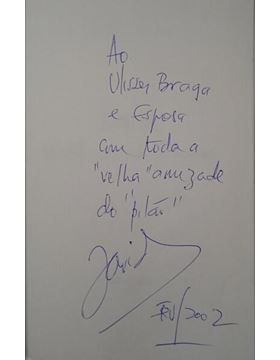 Ao
Ulisses Braga
e Esposa
com toda a
"velha" amizade
do "pilão"
FEV/2002